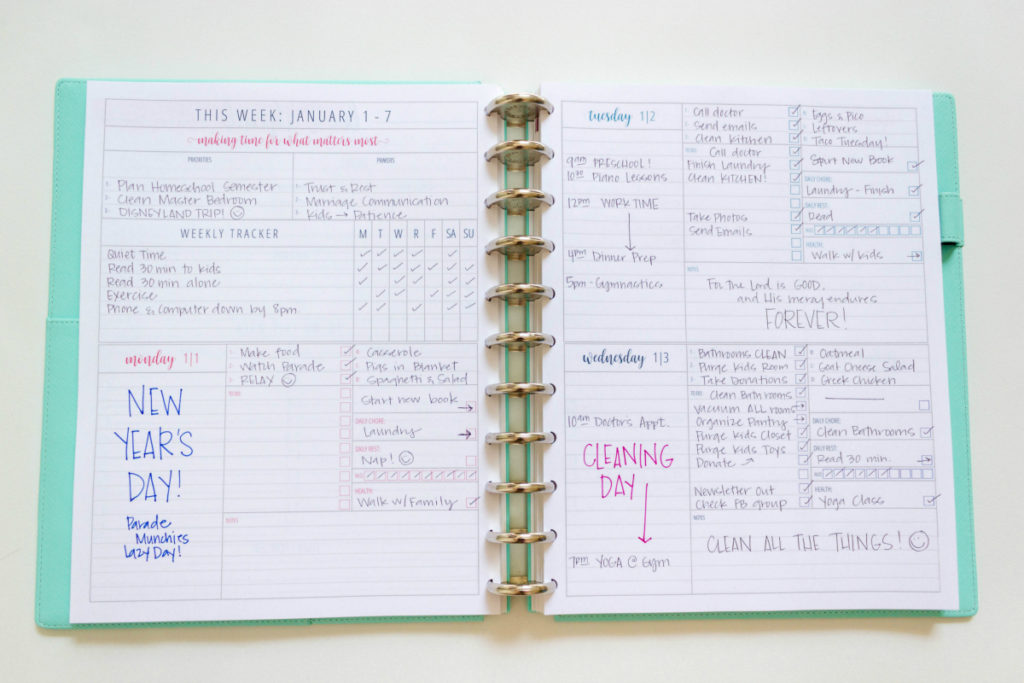 THIS WEEK: JANUARY 1 - 7
making time for what matters most
PRIORITIES
Plan Homeschool Semester
Clean Master Bedroom
DISNEYLAND TRIP!
Trust & Rest
Marriage Communication
Kids → Patience
WEEKLY TRACKER M T W R F SA SU
Quiet Time
Read 30 min to kids
Read 30 min alone
Exercise
Phone & Computer down by 8pm
monday 1|1
NEW
YEAR'S
DAY!
Parade
Munchies
Lazy Day!
Make food
Watch Parade
RELAX
Casserole
Pigs in Blanket
Spaghetti & Salad
TO DO
Start new book →
DAILY CHORE:
Laundry →
DAILY REST:
Nap!
H2O
HEALTH:
Walk w/Family
NOTES
tuesday 1|2
9am PRESCHOOL!
10:30 Piano Lessons
12pm WORK TIME
4pm Dinner Prep
5pm - Gymnastics
Call doctor
Send emails
Clean Kitchen
Eggs & Pico
Leftovers
Taco Tuesday!
TO DO
Call doctor
Finish Laundry
Clean KITCHEN!
Take Photos
Send Emails
Start New Book
DAILY CHORE:
Laundry - Finish
DAILY REST:
Read
H2O
HEALTH:
Walk w/ kids →
NOTES
For the Lord is GOOD,
and His mercy endures
FOREVER!
wednesday 1|3
10am Doctor's Appt.
CLEANING
DAY
7pm YOGA @ Gym
Bathrooms CLEAN
Purge Kids Room
Take Donations
Oatmeal
Goat Cheese Salad
Greek Chicken
TO DO
Clean Bathrooms
Vacuum ALL rooms →
Organize Pantry →
Purge Kids Closet
Purge Kids Toys
Donate →
Newsletter Out
Check FB group
DAILY CHORE:
Clean Bathrooms
DAILY REST:
Read 30 min. →
H2O
HEALTH:
Yoga Class
NOTES
CLEAN ALL THE THINGS!